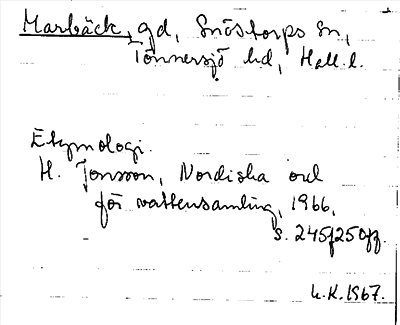 Marbäck, gd, Snöstorps sn,
Tönnersjö hd, Hall. l.
Etymologi.
H. Jonsson, Nordiska ord
för vattensamling, 1966,
s. 245, 250 ff.
K.1967.